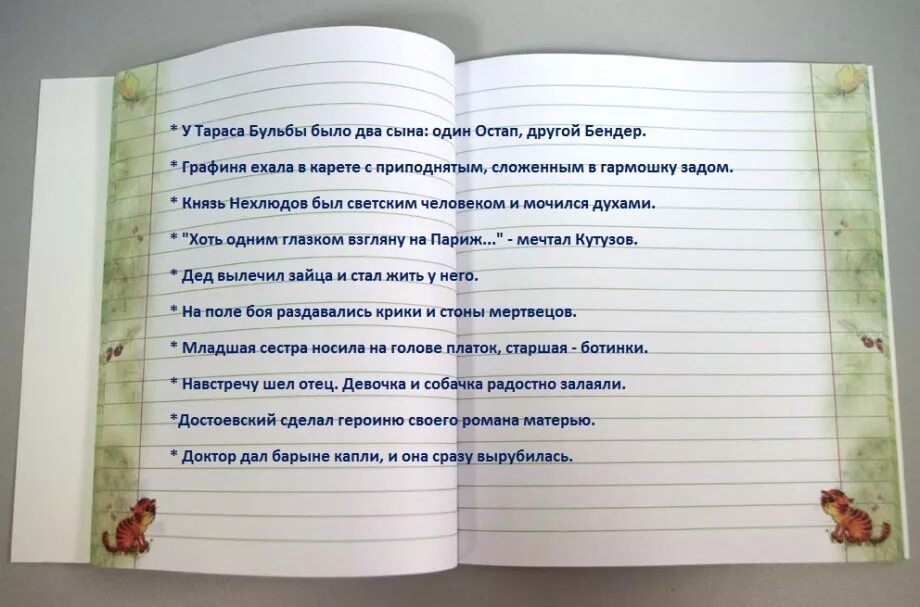 * У Тараса Бульбы было два сына: один Остап, другой Бендер.
* Графиня ехала в карете с приподнятым, сложенным в гармошку задом.
* Князь Нехлюдов был светским человеком и мочился духами.
* "Хоть одним глазком взгляну на Париж..." - мечтал Кутузов.
* Дед вылечил зайца и стал жить у него.
* На поле боя раздавались крики и стоны мертвецов.
* Младшая сестра носила на голове платок, старшая - ботинки.
* Навстречу шел отец. Девочка и собачка радостно залаяли.
*Достоевский сделал героиню своего романа матерью.
* Доктор дал барыне капли, и она сразу вырубилась.